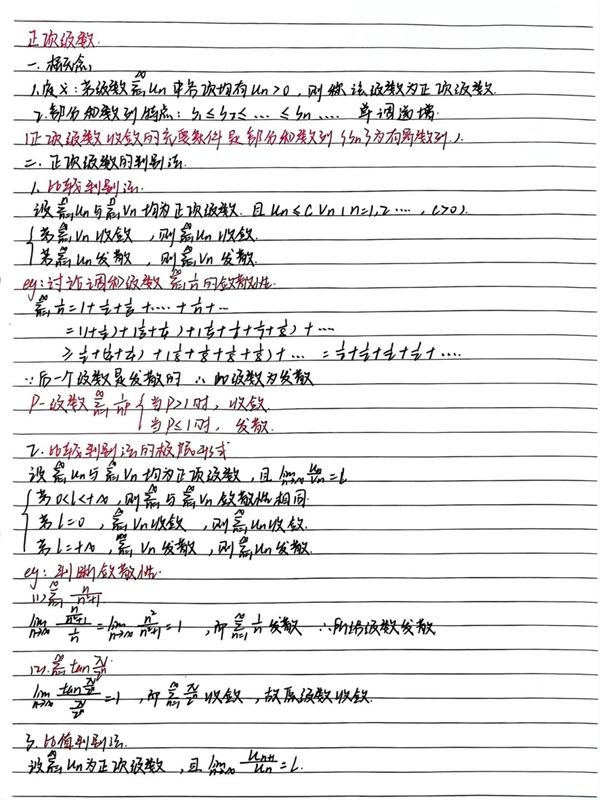 正项级数.
一. 概念
1. 定义: 若级数∑(n=1→∞) Un 中各项均有 Un>0, 则称该级数为正项级数
2. 部分和数列特点: S1≤S2≤…≤Sn…. 单调递增
(正项级数收敛的充要条件是部分和数列{Sn}为有界数列.)
二. 正项级数的判别法
1. 比较判别法.
设∑Un与∑Vn均为正项级数. 且Un≤CVn (n=1,2…, C>0)
若∑(n=1→∞) Vn 收敛, 则∑(n=1→∞) Un 收敛.
若∑(n=1→∞) Un 发散, 则∑(n=1→∞) Vn 发散.
eg: 讨论调和级数∑(n=1→∞) 1/n 的敛散性.
∑(n=1→∞) 1/n = 1+1/2+1/3+…+1/n+…
=(1+1/2)+(1/3+1/4)+(1/5+1/6+1/7+1/8)+…
≥1/2+(1/4+1/4)+(1/8+1/8+1/8+1/8)+… =1/2+1/2+1/2+1/2+….
∵后一个级数是发散的 ∴ 级数为发散
P-级数∑(n=1→∞) 1/n^p { 当P>1时, 收敛.
当P≤1时, 发散.
2. 比较判别法的极限形式
设∑(n=1→∞) Un与∑(n=1→∞) Vn 均为正项级数, 且 lim(n→∞) Un/Vn = l
若 0<l<+∞, 则∑(n=1→∞) 与∑(n=1→∞) Vn 敛散性相同.
若 l=0, ∑(n=1→∞) Vn 收敛, 则∑(n=1→∞) Un 收敛.
若 l=+∞, ∑(n=1→∞) Vn 发散, 则∑(n=1→∞) Un 发散.
eg: 判断敛散性.
(1) ∑(n=1→∞) n/(n²+1)
lim(n→∞) (n/(n²+1))/(1/n) = lim(n→∞) n²/(n²+1) = 1, 而∑(n=1→∞) 1/n 发散 ∴所给级数发散
(2). ∑(n=1→∞) tan π/2^n
lim(n→∞) (tan π/2^n)/(π/2^n) = 1, 而∑(n=1→∞) π/2^n 收敛, 故原级数收敛.
3. 比值判别法.
设∑(n=1→∞) Un 为正项级数, 且 lim(n→∞) Un+1/Un = l.